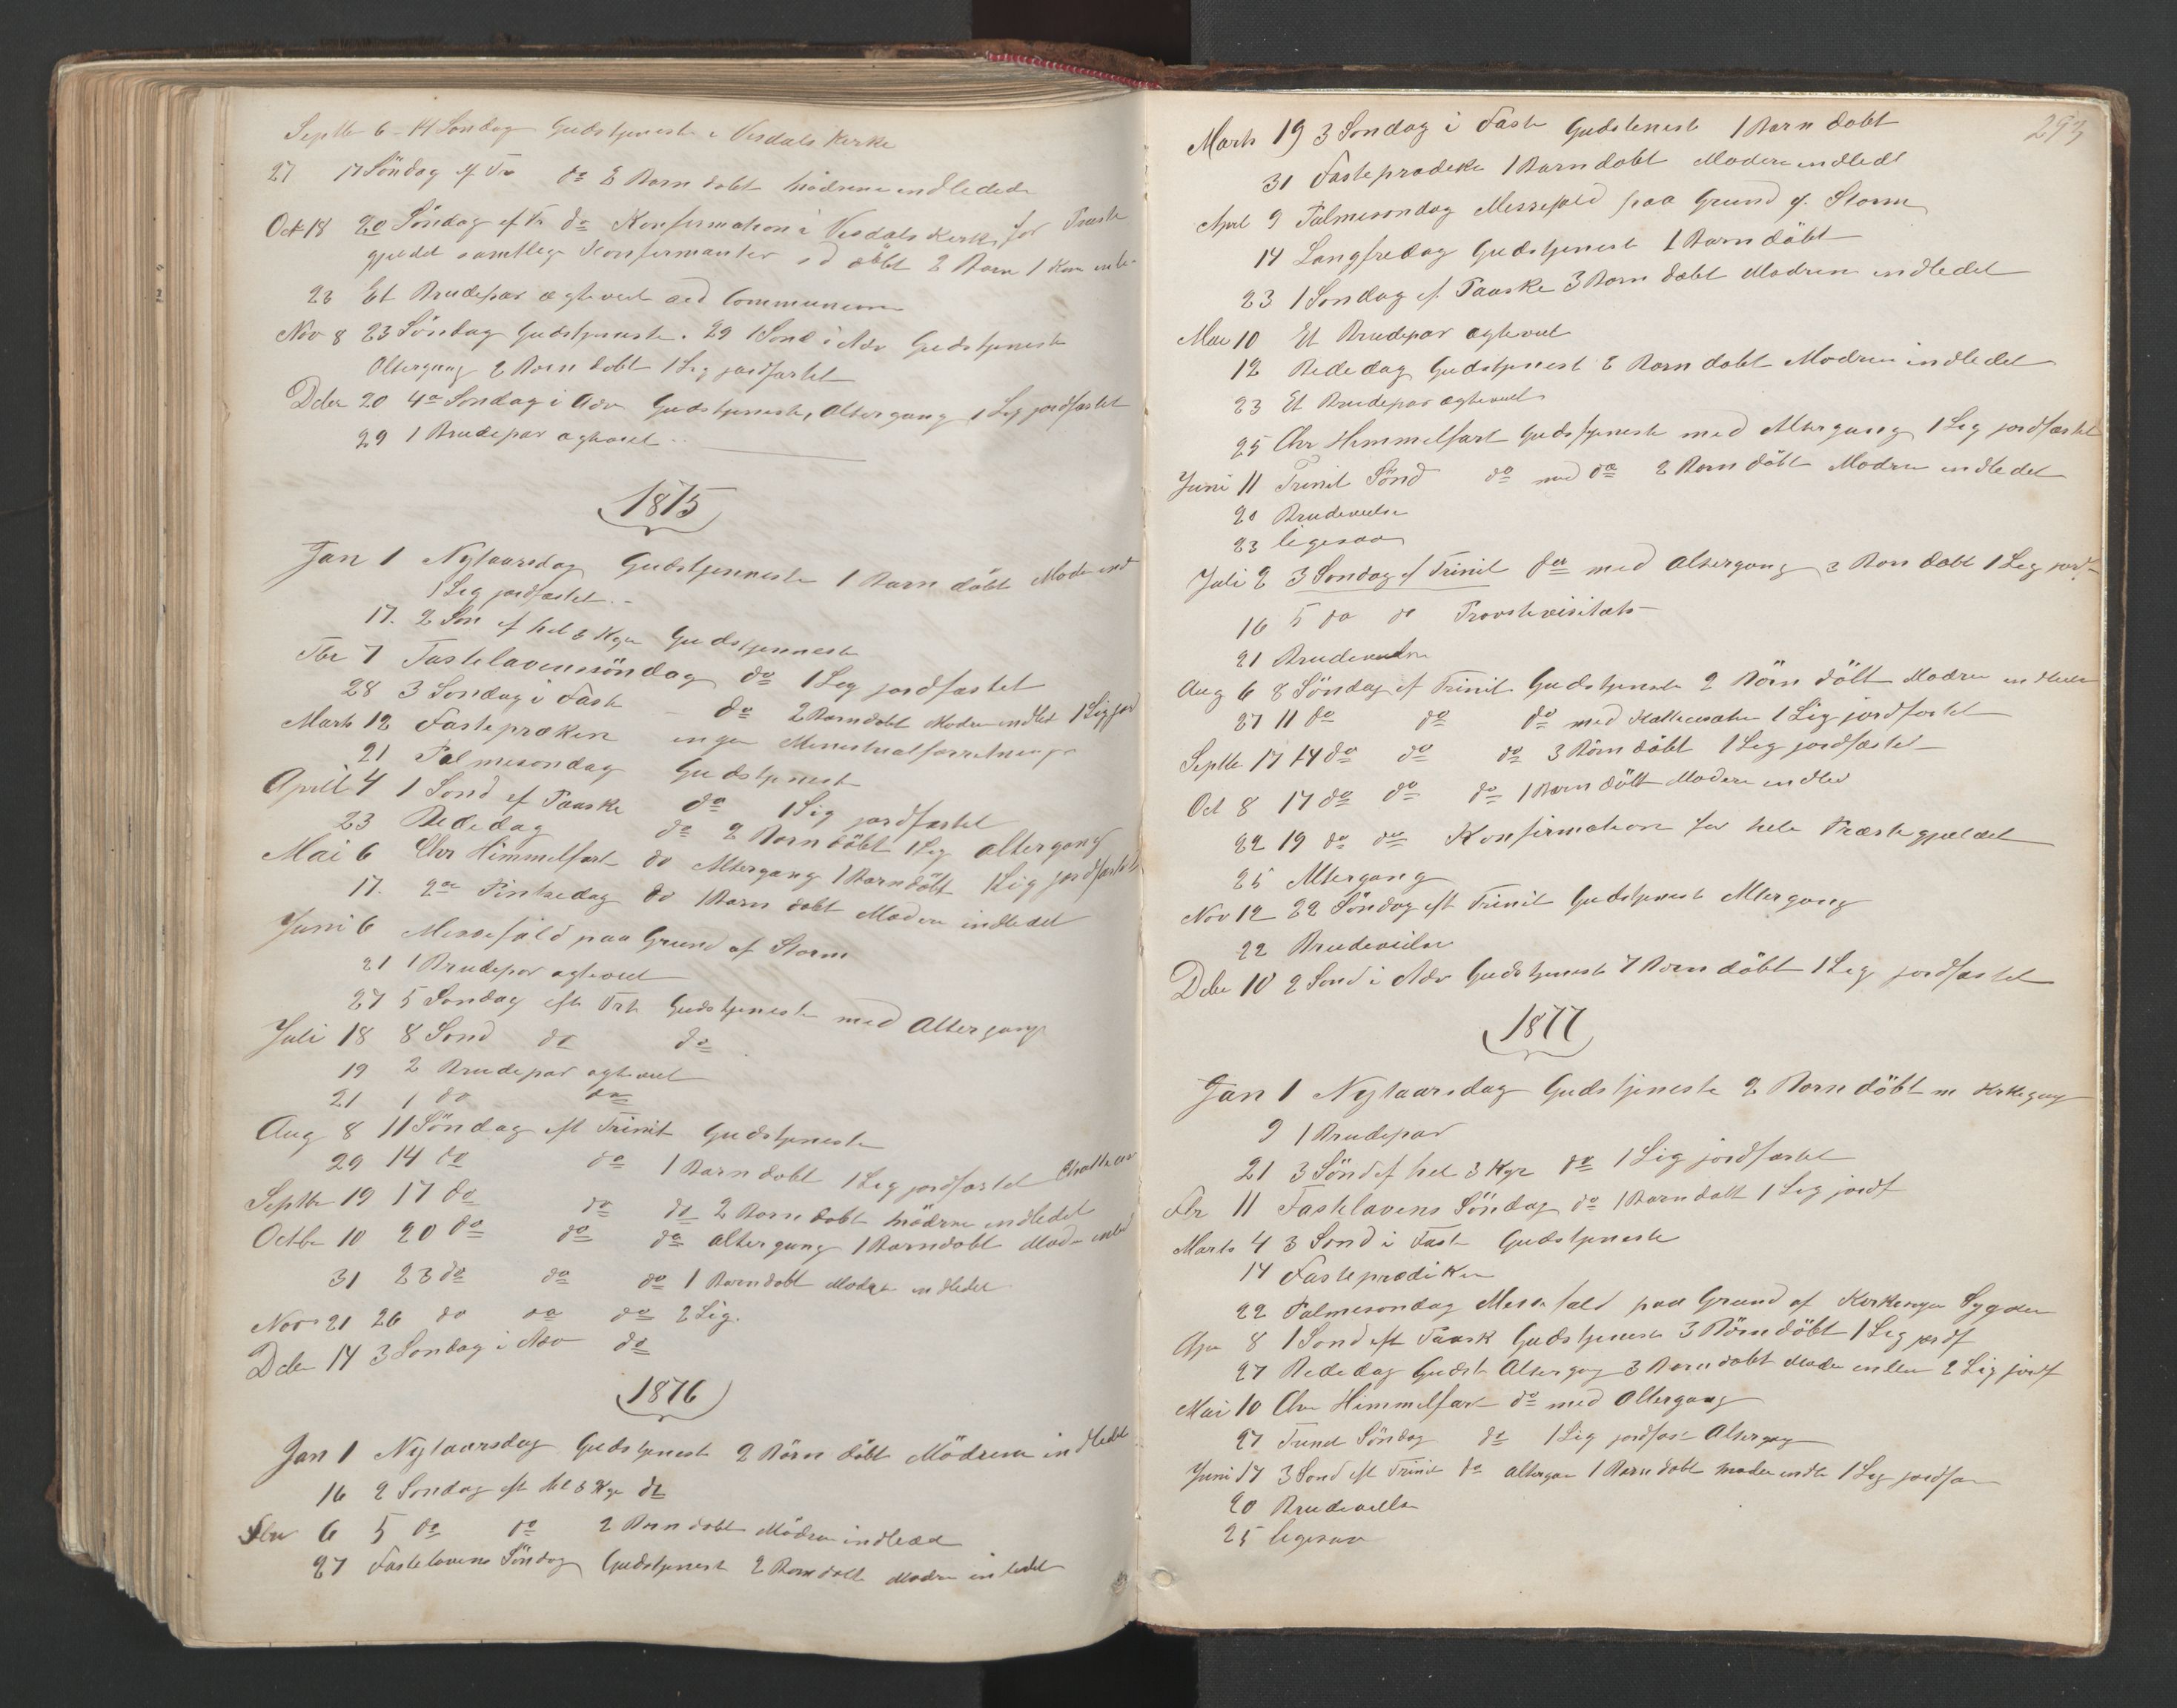 Septbr 6 - 14 Söndag Gudstjeneste i Visdals Kirke
27 17 Söndag ef Tr do 2 Börn döbt Mödrene indledede
Oct 18 20 Söndag ef Tr do Konfirmation i Visdals Kirke for Præste
gjeldet samtlige Konfirmanter döbt 2 Börn 1
23 Et Brudepar ægteviet Communion
Nov 8 23 Söndag Gudstjeneste. 29 1 Sönd i Adv Gudstjeneste
Altergang 2 Börn döbt 1 Lig jordfæstet
Dcbr 20 4de Söndag i Adv Gudstjeneste, Altergang 1 Lig jordfæstet
29 1 Brudepar ægteviet
1875
Jan 1 Nytaarsdag Gudstjenneste 1 Barn döbt Moder indl
1 Lig jordfæstet. -
17. 2 Sön ef hel 3 Kgr Gudstjenneste
Fbr 7 Fastelavenssöndag do 1 Lig jordfæstet
28 3 Söndag i Faste - do 2 Barn döbt Modren indled 1 Lig jord
Marts 12 Fastepræken ingen Ministrialforretninger
21 Palmesöndag Gudstjenest
April 4 1 Sönd ef Paaske do 1 Lig jordfæstet
23 Bededag do 2 Börn döbt 1 Lig altergang
Mai 6 Chr Himmelfart do Altergang 1 Barn döbt 1 Lig jordfæstet
17. 2den Pintsedag do 1 Barn döbt Moderen indledet
Juni 6 Messefald paa Grund af Storm
21 1 Brudepar ægteviet
27 5 Söndag eft Trt Gudstjeneste med Altergang
Juli 18 8 Sönd do do
19 2 Brudepar ægteviet
21 1 do do
Aug 8 11 Söndag eft Trinit Gudstjeneste
29 14 do do 1 Barn döbt 1 Lig jordfæstet
Septbr 19 17 do do do 2 Börn döbt Mödren indledet
Octbr 10 20 do do do altergang 1 Barn döbt Mod indled
31 23 do do do 1 Barn döbt Modren indledet
Nov 21 26 do do do 2 Lig.
Dcbr 14 3 Söndag i Adv do
1876
Jan 1 Nytaarsdag Gudstjenest 2 Börn döbt Mödrene indledet
16 2 Söndag eft hel 3 Kgr do
Fbr 6 5 do do 2 Börn döbt Mödren indledet
27 Fastelavens Söndag Gudstjenest 2 Börn döbt Modren indledet
293
Marts 19 3 Söndag i Faste Gudstjeneste 1 Barn döbt
31 Fasteprædiken 1 Barn döbt Moderen indledt
April 9 Palmesöndag Messefald paa Grund af Storm
14 Langfredag Gudstjeneste 1 Barn döbt
23 1 Söndag ef. Paaske 3 Börn döbt Modren indledet
Mai 10 Et Brudepar ægteviet
12 Bededag Gudstjenest 2 Börn döbt Modren indledet
23 Et Brudepar ægteviet
25 Chr Himmelfart Gudstjeneste med Altergang 1 Lig jordfæstet
Juni 11 Trinit Sönd do med do 2 Börn döbt Modren indledet
20 Brudevielse
23 ligesaa
Juli 2 3 Söndag ef Trinit do med Altergang 2 Börn döbt 1 Lig jord-
16 5 do do Provstevisitats
21 Brudevielse
Aug 6 8 Söndag ef Trinit Gudstjeneste 2 Börn döbt Modren indledet
27 11 do do do med Katkesation 1 Lig jordfæstet
Septbr 17 14 do do do 3 Börn döbt 1 Lig jordfæstet
Oct 8 17 do do do 1 Barn döbt Moderen indled
22 19 do do Konfirmation for hele Præstegjældet
25 Altergang
Nov 12 22 Söndag eft Trinit Gudstjenest Altergang
22 Brudevielse
Dcbr 10 2 Sönd i Adv Gudstjeneste 7 Börn döbt 1 Lig jordfæstet
1877
Jan 1 Nytaarsdag Gudstjeneste 2 Börn döbt m Kirkegang
9 1 Brudepar
21 3 Sönd ef hel 3 Kgr do 1 Lig jordfæstet
Fbr 11 Fastelavens Söndag do 1 Barn döbt 1 Lig jordf
Marts 4 3 Sönd i Fast Gudstjeneste
14 Fasteprædiken
22 Palmesöndag Messefald paa Grund af Sygdom
Apr 8 1 Sönd eft Paask Gudstjeneste 3 Börn döbt 1 Lig jordf
27 Bededag Gudst Altergang 3 Börn döbt 2 Lig jordf
Mai 10 Chr Himmelfart do med Altergang
27 Söndag do 1 Lig jordfæs Altergang
Juni 17 3 Sönd eft Trinit do altergan 1 Barn döbt moder indle 1 Lig jordfæ
20 Brudevielse
25 ligesaa